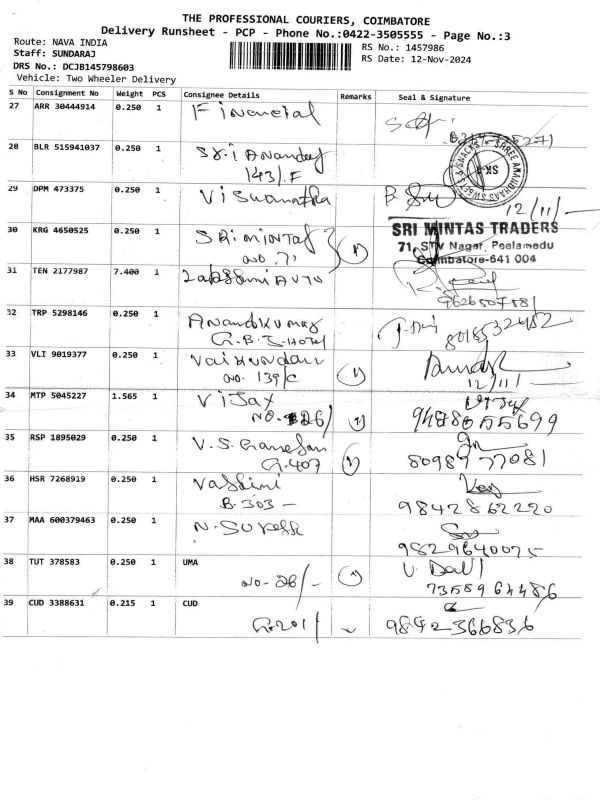 THE PROFESSIONAL COURIERS, COIMBATORE
Delivery Runsheet - PCP - Phone No.:0422-3505555 - Page No.:3
Route: NAVA INDIA
RS No.: 1457986
Staff: SUNDARAJ
RS Date: 12-Nov-2024
DRS No.: DCJB145798603
Vehicle: Two Wheeler Delivery
S No Consignment No Weight PCS Consignee Details Remarks Seal & Signature
27 ARR 30444914 0.250 1 Financial
28 BLR 515941037 0.250 1 Sri Anandas
143/.F
29 DPM 473375 0.250 1 Viswanatha
12/11/-
30 KRG 4650525 0.250 1 SRI MINTAS
NO. 71
SRI MINTAS TRADERS
71, STV Nagar, Peelamedu
Coimbatore-641 004
31 TEN 2177987 7.400 1 Lakshmi AUTO
9626507581
32 TRP 5298146 0.250 1 Anandkumar
G.B.T. HOTEL
8018532452
33 VLI 9019377 0.250 1
NO. 139/C
12/11/-
34 MTP 5045227 1.565 1 VIJAY Vijay
35 RSP 1895029 0.250 1 V.S. Ganesan
G.407
8098977081
36 HSR 7268919 0.250 1
B.303 -
9842862220
37 MAA 600379463 0.250 1 N. Suresh
9829640075
38 TUT 378583 0.250 1 UMA
NO-26/-
7358964486
39 CUD 3388631 0.215 1 CUD
G.201/
9842366836